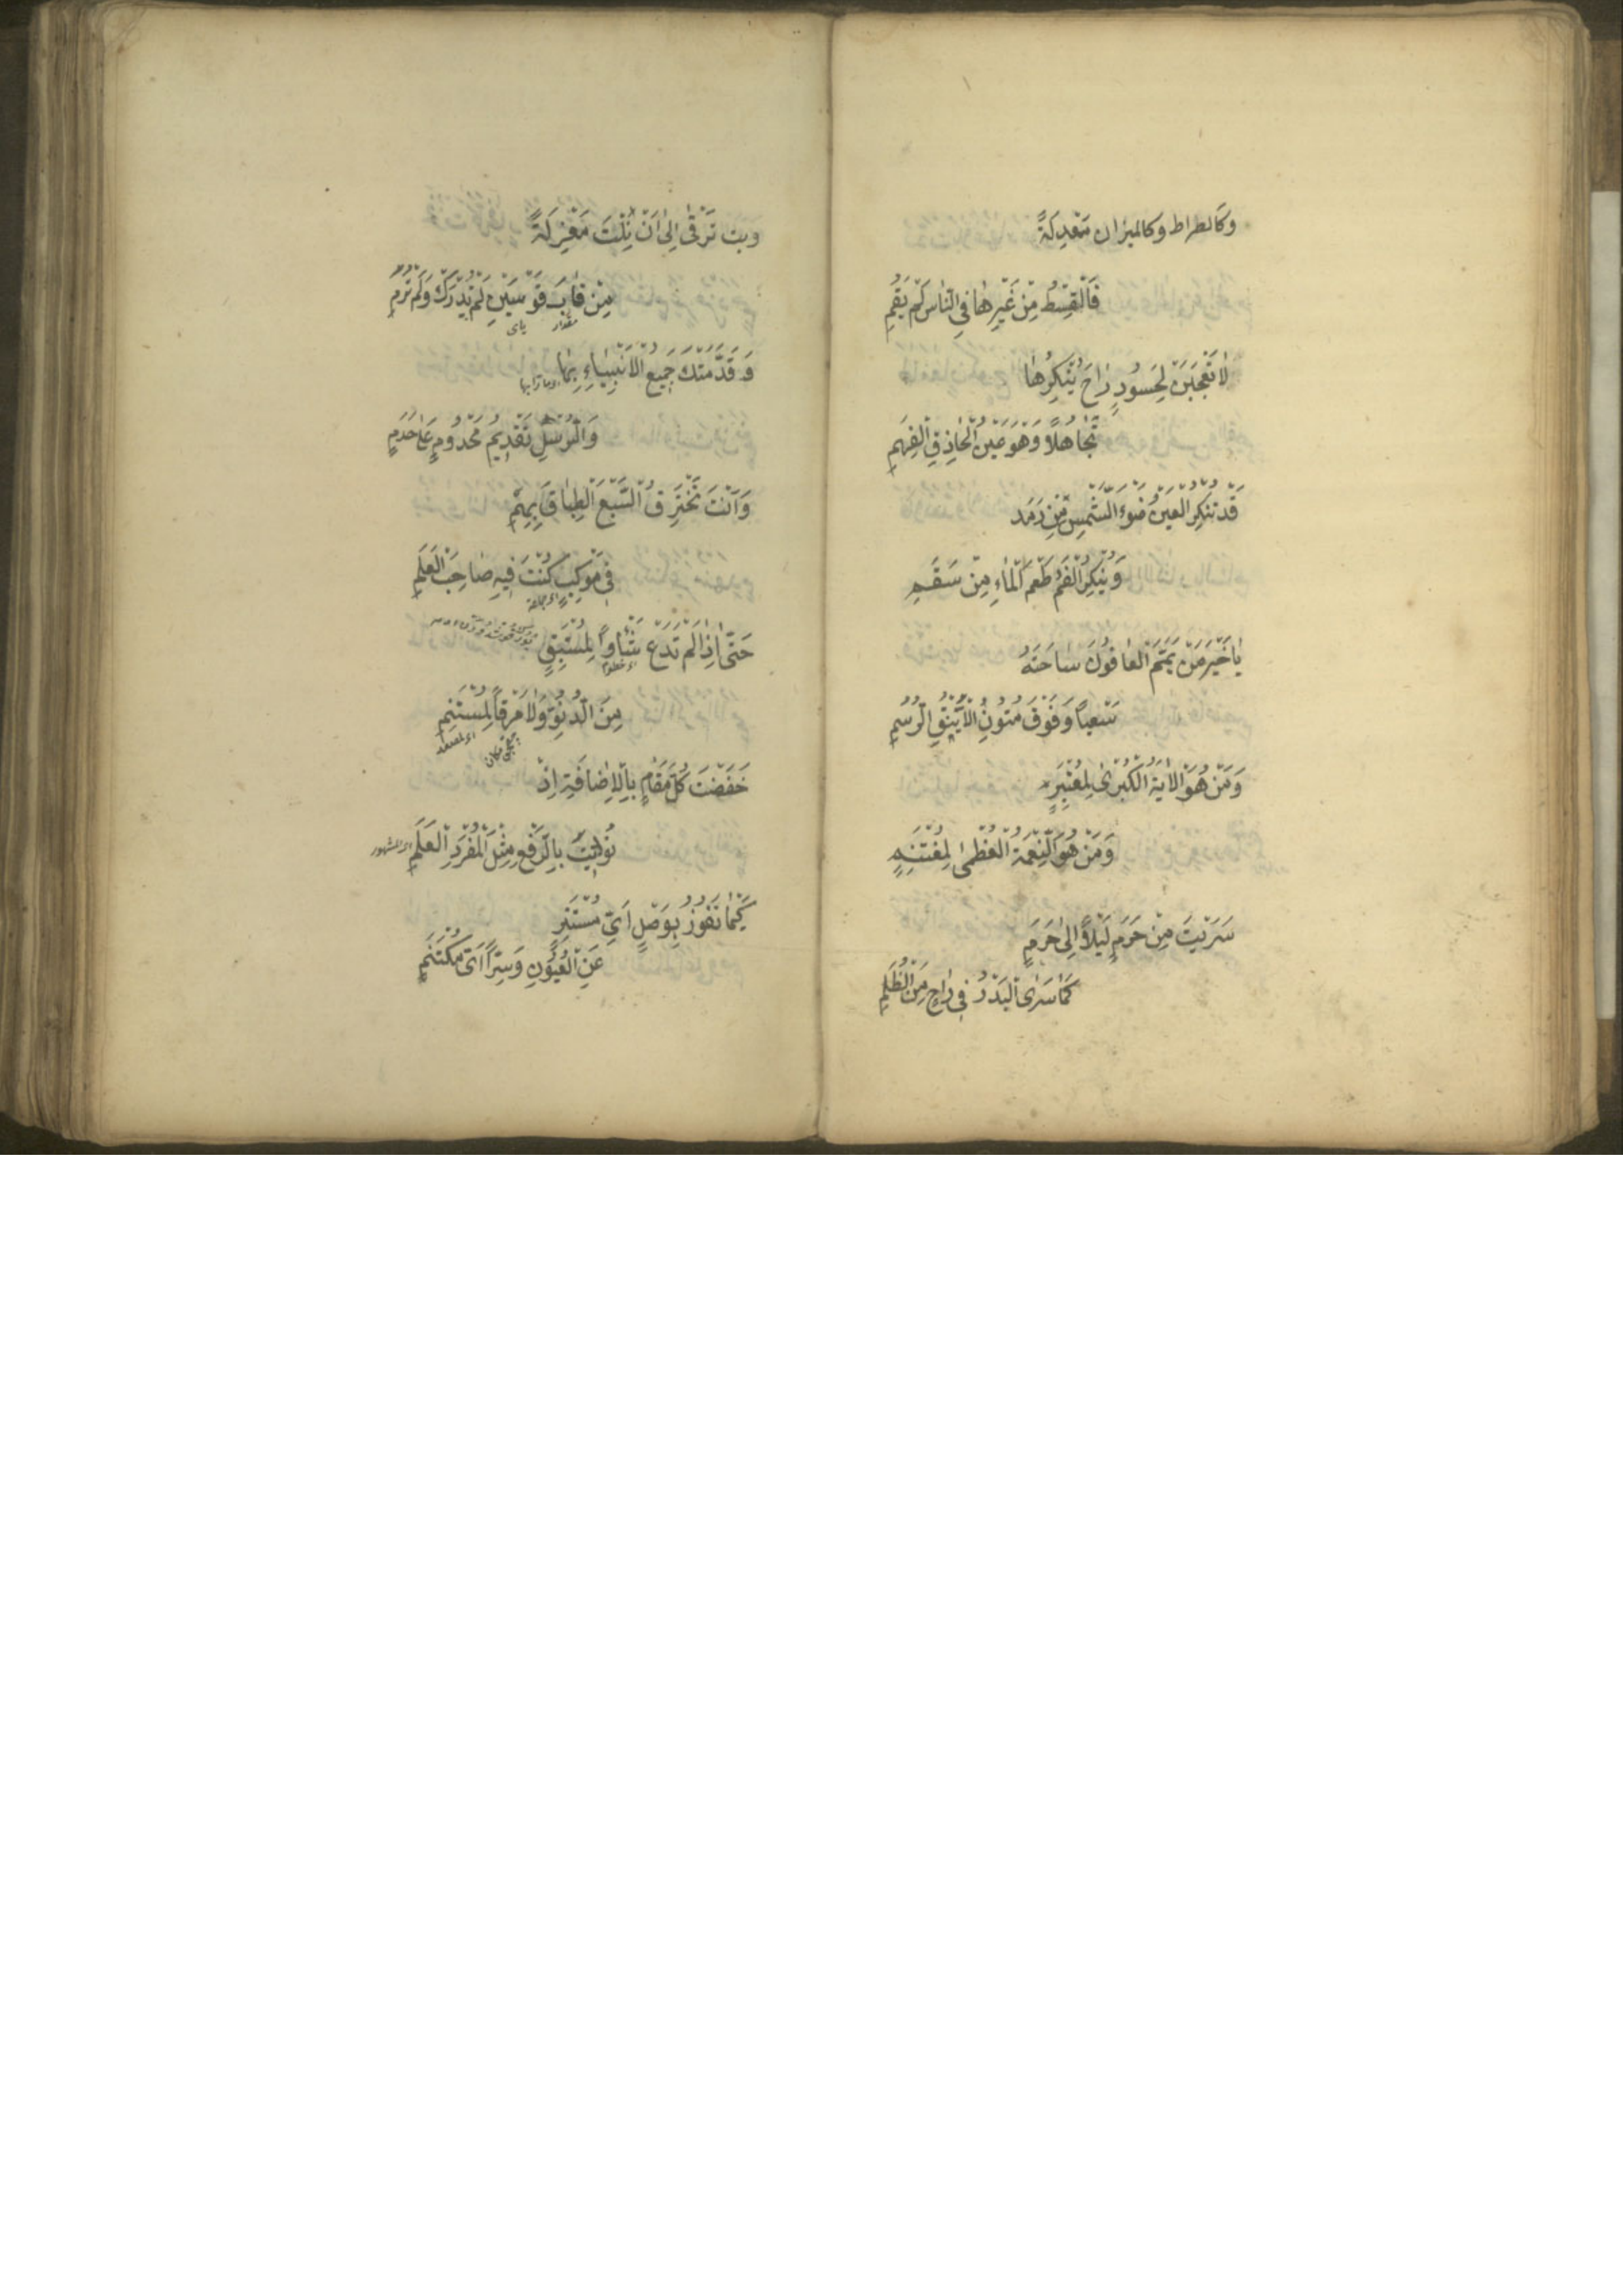 وَكَالصراط وكالميزان مَعْدِلَةً
فَالْقِسْطُ مِنْ غَيْرِهَا فِي النَّاسِ لَمْ يَقُمِ
لَا تَعْجَبَنْ لِحَسُودٍ رَاحَ يُنْكِرُهَا
تَجَاهُلًا وَهْوَ عَيْنُ الْحَاذِقِ الْفَهِمِ
قَدْ تُنْكِرُ الْعَيْنُ ضَوْءَ الشَّمْسِ مِنْ رَمَدٍ
وَيُنْكِرُ الْفَمُ طَعْمَ الْمَاءِ مِنْ سَقَمِ
يَا خَيْرَ مَنْ يَمَّمَ الْعَافُونَ سَاحَتَهُ
سَعْيًا وَفَوْقَ مُتُونِ الْأَيْنُقِ الرُّسُمِ
وَمَنْ هُوَ الْآيَةُ الْكُبْرَى لِمُعْتَبِرٍ
وَمَنْ هُوَ النِّعْمَةُ الْعُظْمَى لِمُغْتَنِمٍ
سَرَيْتَ مِنْ حَرَمٍ لَيْلًا إِلَى حَرَمٍ
كَمَا سَرَى الْبَدْرُ فِي دَاجٍ مِنَ الظُّلَمِ
وَبِتَّ تَرْقَى إِلَى أَنْ نِلْتَ مَنْزِلَةً
مِنْ قَابَ قَوْسَيْنِ لَمْ تُدْرَكْ وَلَمْ تُرَمِ
مقدار یای
وَقَدَّمَتْكَ جَمِيعُ الْأَنْبِيَاءِ بِهَا
وَالرُّسْلِ تَقْدِيمُ مَخْدُومٍ عَلَى خَدَمِ
وَأَنْتَ تَخْتَرِقُ السَّبْعَ الطِّبَاقَ بِهِمْ
فِي مَوْكِبٍ كُنْتَ فِيهِ صَاحِبَ الْعَلَمِ
اى جماعة
حَتَّى إِذَا لَمْ تَدَعْ شَأْوًا لِمُسْتَبِقٍ
مِنَ الدُّنُوِّ وَلَا مَرْقًا لِمُسْتَنِمِ
خَفَضْتَ كُلَّ مَقَامٍ بِالْإِضَافَةِ إِذْ
نُودِيتَ بِالرَّفْعِ مِثْلَ الْمُفْرَدِ الْعَلَمِ
اى المشهور
كَيْمَا تَفُوزَ بِوَصْلٍ أَيِّ مُسْتَتِرٍ
عَنِ الْعُيُونِ وَسِرًّا أَيِّ مُكْتَتَمِ